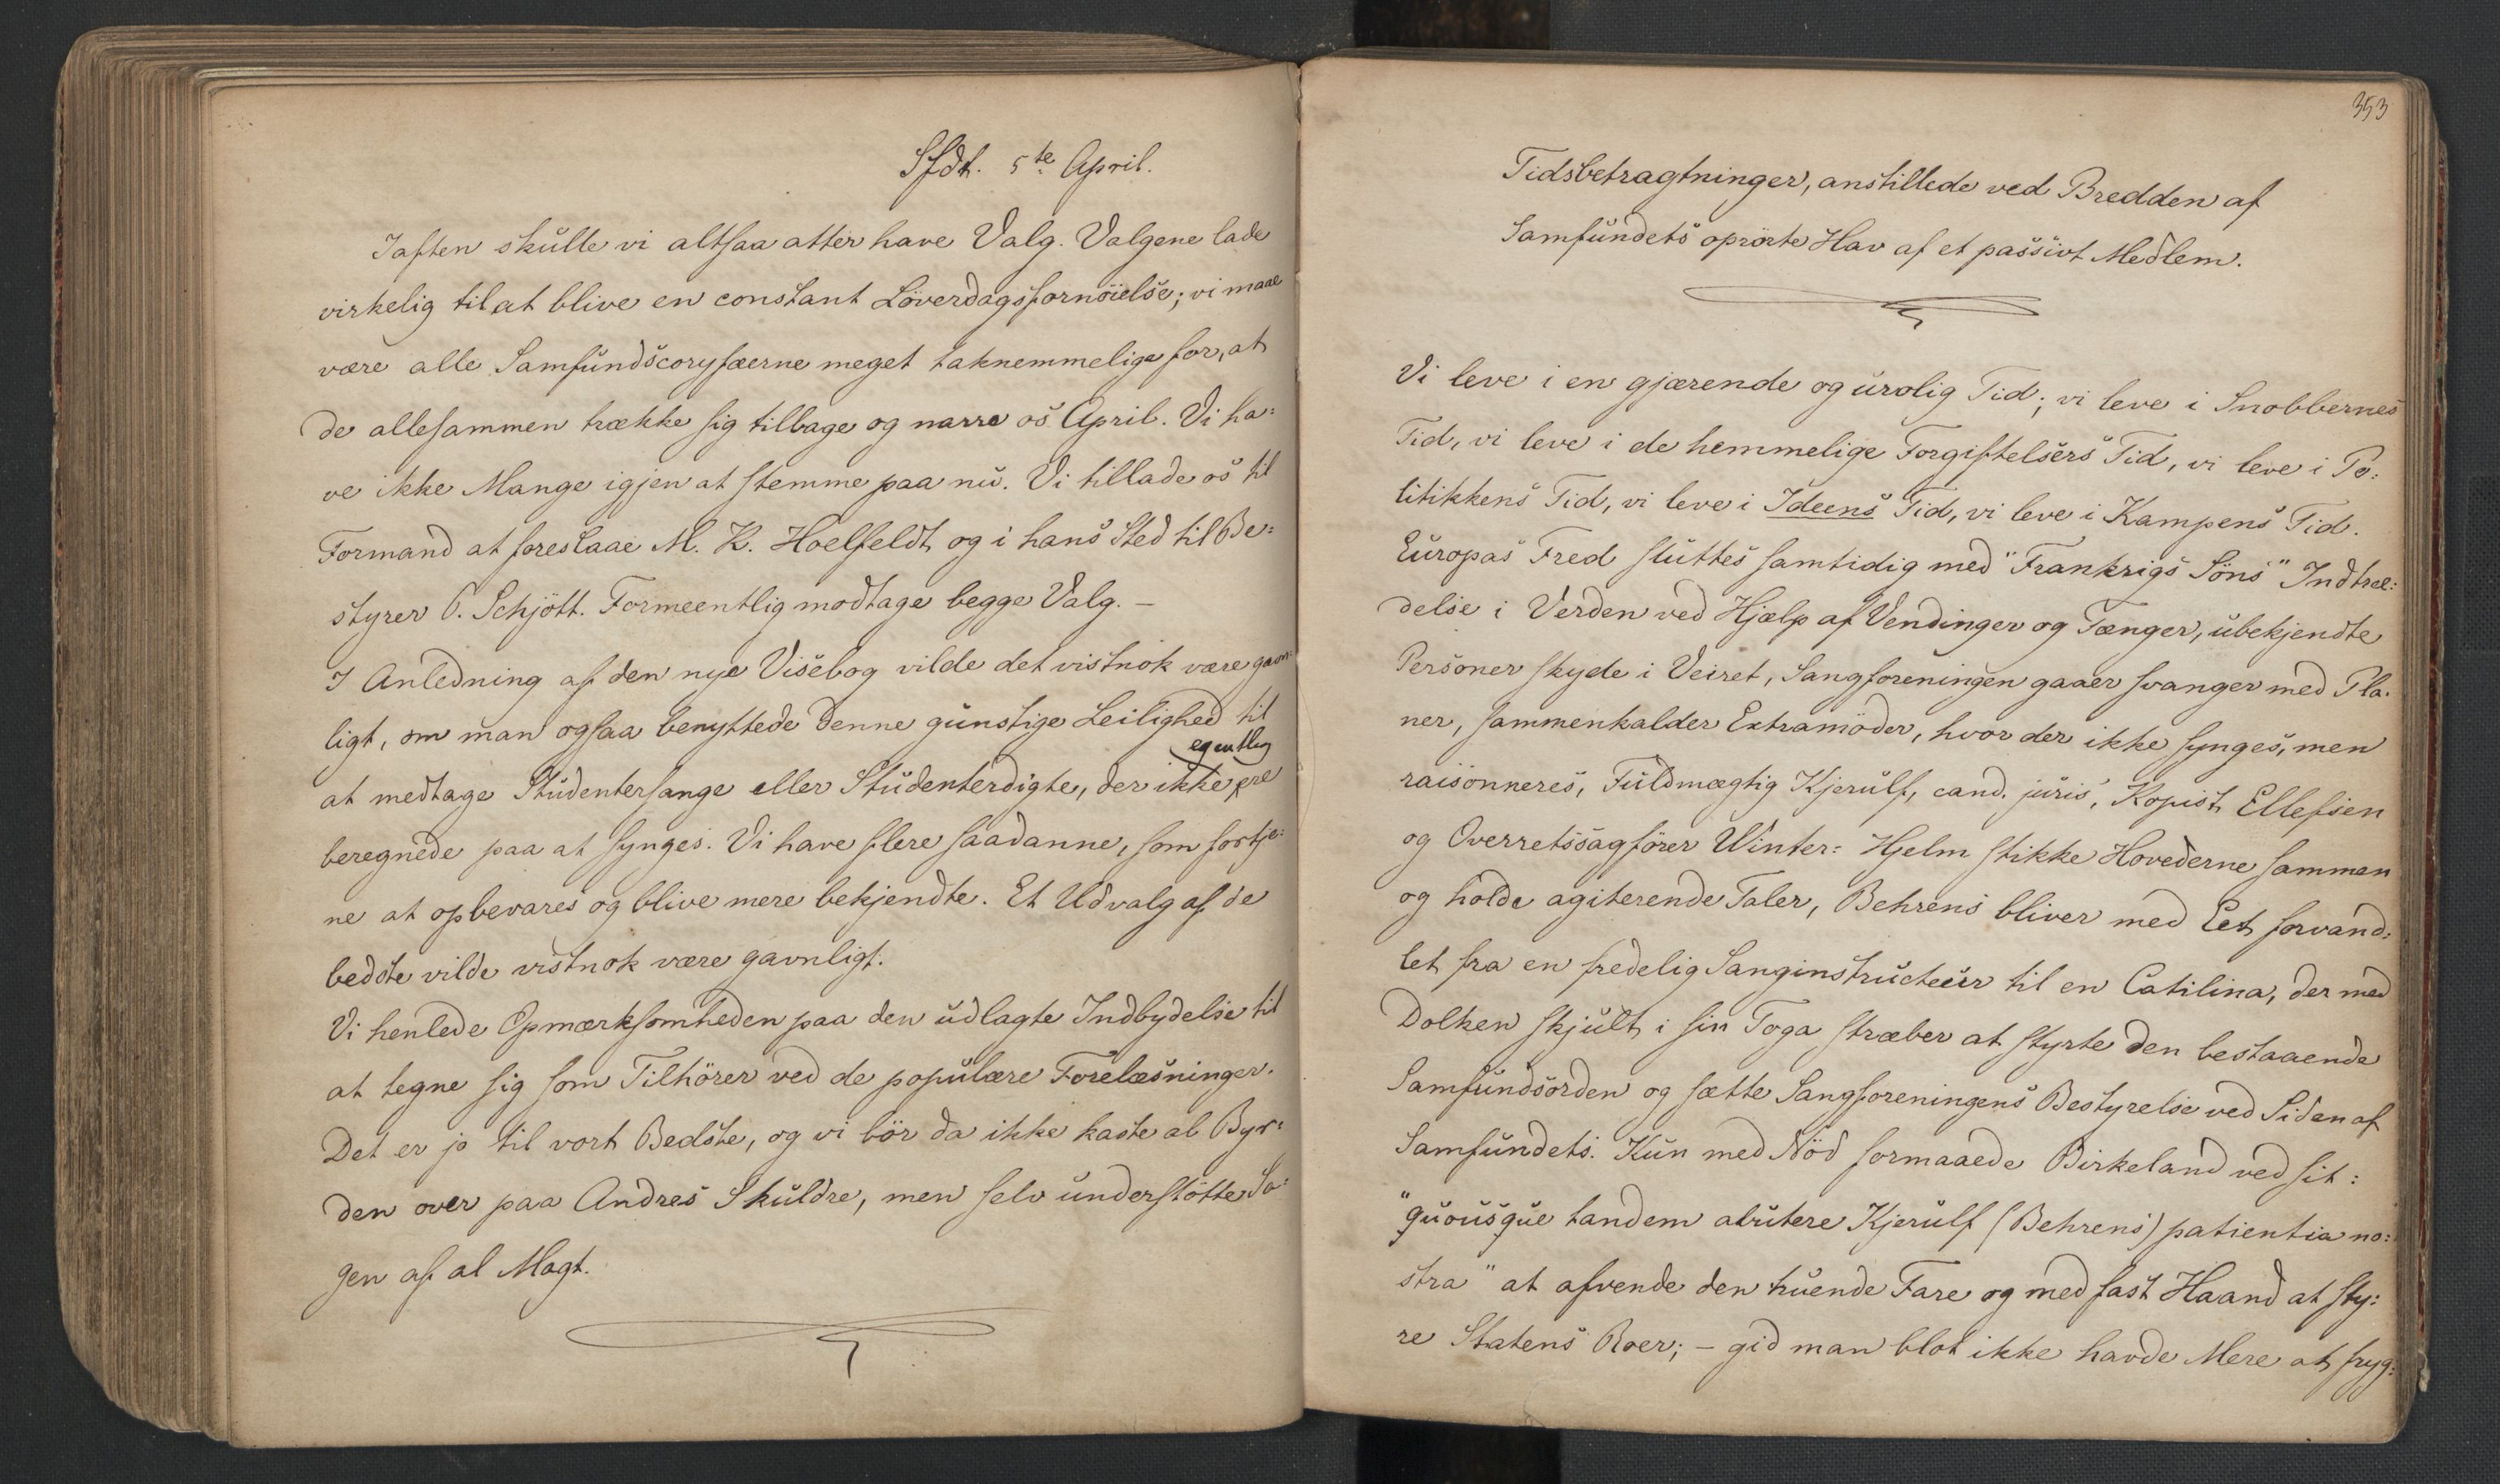 Sfdt. 5te April.
Iaften skulle vi altsaa atter have Valg. Valgene lade
virkelig til at blive en constant Löverdagsfornöielse; vi maae
være alle Samfundscoryfæerne meget taknemmelige for, at
de allesammen trække sig tilbage og narre os April. Vi ha=
ve ikke Mange igjen at stemme paa nu. Vi tillade os til
Formand at foreslaae M. K. Hoelfeldt og i hans Sted til Be=
styrer O. Schjött. Formeentlig modtage begge Valg. —
I Anledning af den nye Visebog vilde det vistnok være gavn=
ligt, om man ogsaa benyttede denne gunstige Leilighed til
egentlig
at medtage Studentersange eller Studenterdigte, der ikke ere
beregnede paa at synges. Vi have flere saadanne, som fortje=
ne at opbevares og blive mere bekjendte. Et Udvalg af de
bedste vilde vistnok være gavnligt.
Vi henlede Opmærksomheden paa den udlagte Indbydelse til
at tegne sig som Tilhörer ved de populære Forelæsninger.
Det er jo til vort Bedste, og vi bör da ikke kaste al Byr=
den over paa Andres Skuldre, men selv understötte Sa=
gen af al Magt.
353
Tidsbetragtninger, anstillede ved Bredden af
Samfundets oprörte Hav af et passivt Medlem.
Vi leve i en gjærende og urolig Tid; vi leve i Snobbernes
Tid, vi leve i de hemmelige Forgiftelsers Tid, vi leve i Po=
litikkens Tid, vi leve i Ideens Tid, vi leve i Kampens Tid.
Europas Fred sluttes samtidig med "Frankrigs Söns" Indtræ=
delse i Verden ved Hjælp af Vendinger og Tænger, ubekjendte
Personer skyde i Veiret, Sangforeningen gaaer svanger med Pla=
ner, sammenkalder Extramöder, hvor der ikke synges, men
raisonneres, Fuldmægtig Kjerulf, cand. juris, Kopist Ellefsen
og Overretssagförer Winter= Hjelm stikke Hovederne sammen
og holde agiterende Taler, Behrens bliver med Eet forvand=
let fra en fredelig Sanginstructeur til en Catilina, der med
Dolken skjult i sin Toga stræber at styrte den bestaaende
Samfundsorden og sætte Sangforeningens Bestyrelse ved Siden af
Samfundets. Kun med Nöd formaaede Birkeland ved sit:
"quousque tandem abutere Kjerulf (Behrens) patientia no=
stra" at afvende den truende Fare og med fast Haand at sty=
re Statens Roer; — gid man blot ikke havde Mere at fryg=